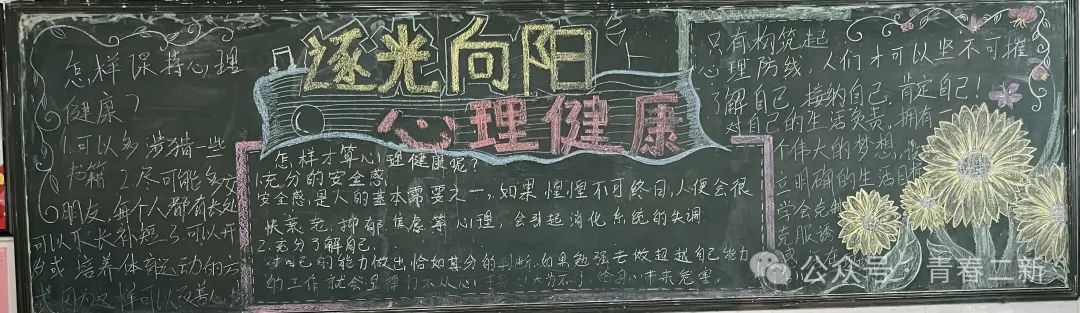 逐光向阳
心理健康
怎样保持心理
健康?
1.可以多涉猎一些
书籍 2.尽可能多交
朋友,每个人都有长处
可以取长补短 3.可以开
或培养体育运动的方
式因为这样可以
怎样才算心理健康呢?
1.充分的安全感
安全感是人的基本需要之一,如果惶惶不可终日,人便会很
快衰老.抑郁 焦虑等心理,会引起消化系统的失调
2.充分了解自己.
对自己的能力做出恰如其分的判断,如果勉强去做超越自己能力
的工作就会显得力不从心
只有构筑起
心理防线,人们才可以坚不可摧
了解自己,接纳自己,肯定自己!
对自己的生活负责,拥有
个伟大的梦想,
立明确的生活目标
学会克制
克服诱
公众号·青春二新